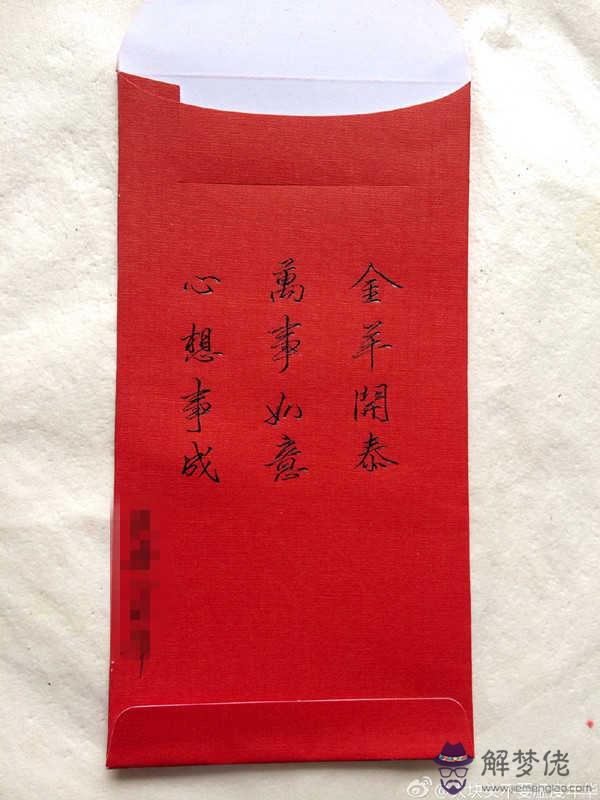 金羊開泰
萬事如意
心想事成
解梦佬
www.jiemenglao.com